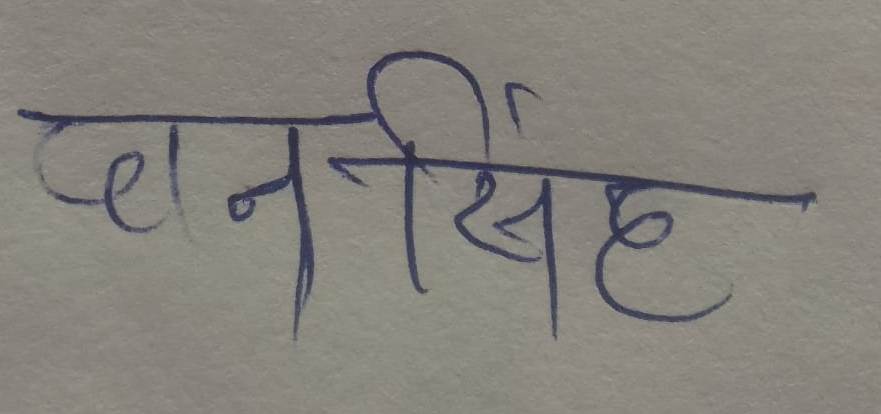 धन सिंह